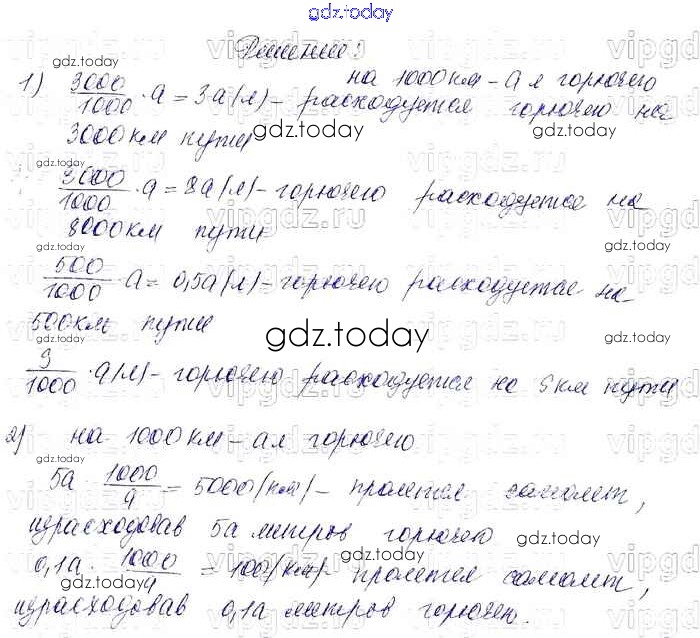 gdz.today
Решение:
1) 3000/1000 · a = 3a (л) – расходуется горючего на
на 1000 км – a л горючего
3000 км пути
8000/1000 · a = 8a (л) – горючего расходуется на
8000 км пути
500/1000 · a = 0,5a (л) – горючего расходуется на
500 км пути
gdz.today
S/1000 · a (л) – горючего расходуется на S км пути
2) на 1000 км – a л горючего
5a · 1000/a = 5000 (км) – пролетел самолет,
израсходовав 5a литров горючего
0,1a · 1000/a = 100 (км) – пролетел самолет,
израсходовав 0,1a литров горючего.